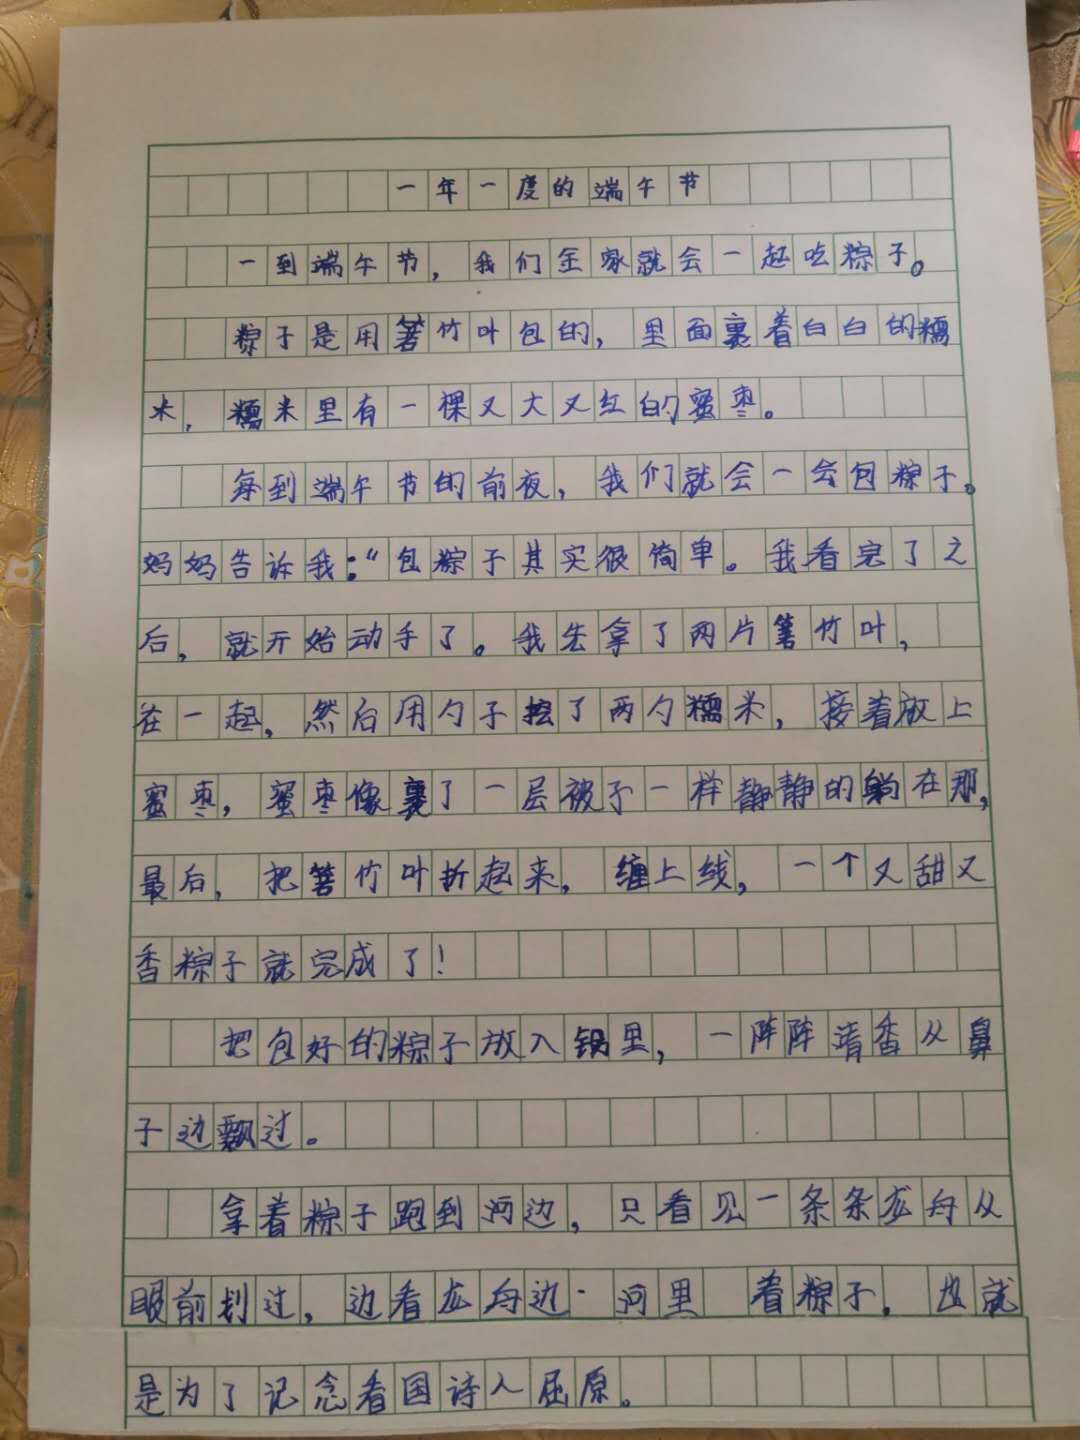 一年一度的端午节
一到端午节，我们全家就会一起吃粽子。
粽子是用箬竹叶包的，里面裹着白白的糯
米，糯米里有一棵又大又红的蜜枣。
每到端午节的前夜，我们就会一会包粽子。
妈妈告诉我：“包粽子其实很简单。我看完了之
后，就开始动手了。我先拿了两片箬竹叶，
在一起，然后用勺子挖了两勺糯米，接着放上
蜜枣，蜜枣像裹了一层被子一样静静的躺在那，
最后，把箬竹叶折起来，缠上线，一个又甜又
香粽子就完成了！
把包好的粽子放入锅里，一阵阵清香从鼻
子边飘过。
拿着粽子跑到河边，只看见一条条龙舟从
眼前划过，边看龙舟边·河里 着粽子，也就
是为了记念看国诗人屈原。